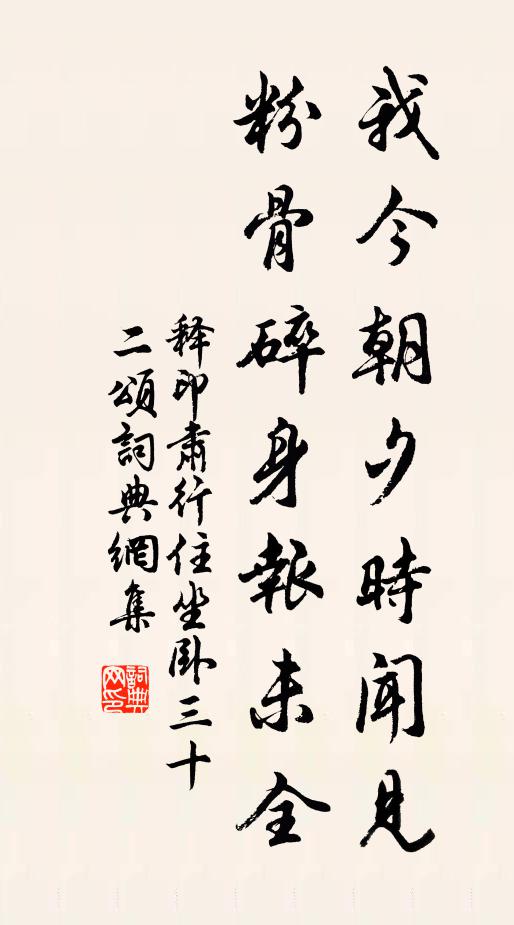 我今朝夕時聞見
粉骨碎身報未全
释印肅行住坐卧三十
二頌詞典網集
詞典網印